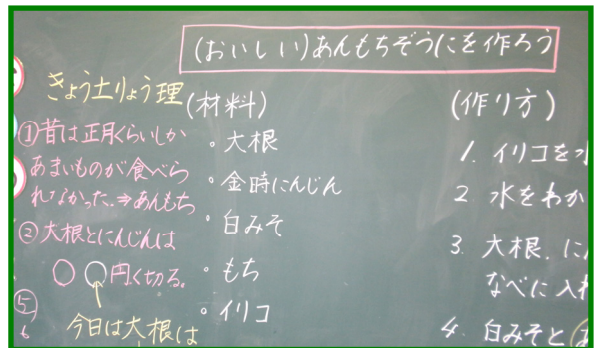 (おいしい)あんもちぞうにを作ろう
きょう土りょう理
①昔は正月くらいしか
あまいものが食べら
れなかった。⇒あんもち
②大根とにんじんは
○ ○ 円く切る。
今日は大根は
⑤
(材料)
。大根
・金時にんじん
・白みそ
・もち
・イリコ
(作り方)
1. イリコを水
2 水をわか
3. 大根、にん
なべに入れ
4. 白みそと